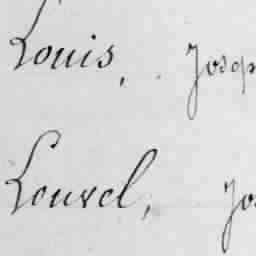 Louis, Josep
Louvel, Jos